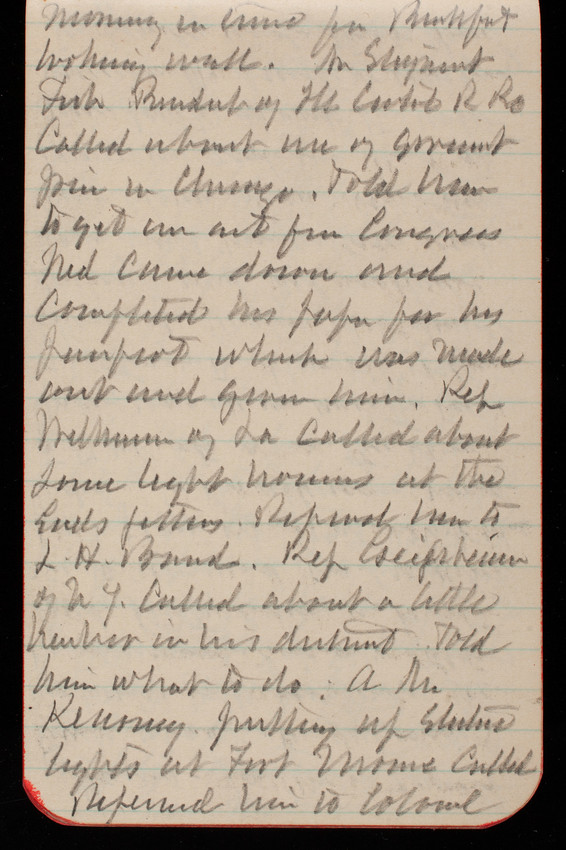 Morning in time for Breakfast
looking well. Mr Stuyvesant
Fish President of Ill Central R Ro
Called about use of Goverment
pier in Chicago. Told him
to get an act from Congress
Ned Came down and
Completed his paper for his
passport which was made
out and given him. Rep
of La Called about
some light houses at the
Referred him to
Rep
of N Y. Called about a little
harbor in his district. Told
him what to do. A Mr
putting up Electric
lights at Fort Monroe Called
Referred him to Colonel